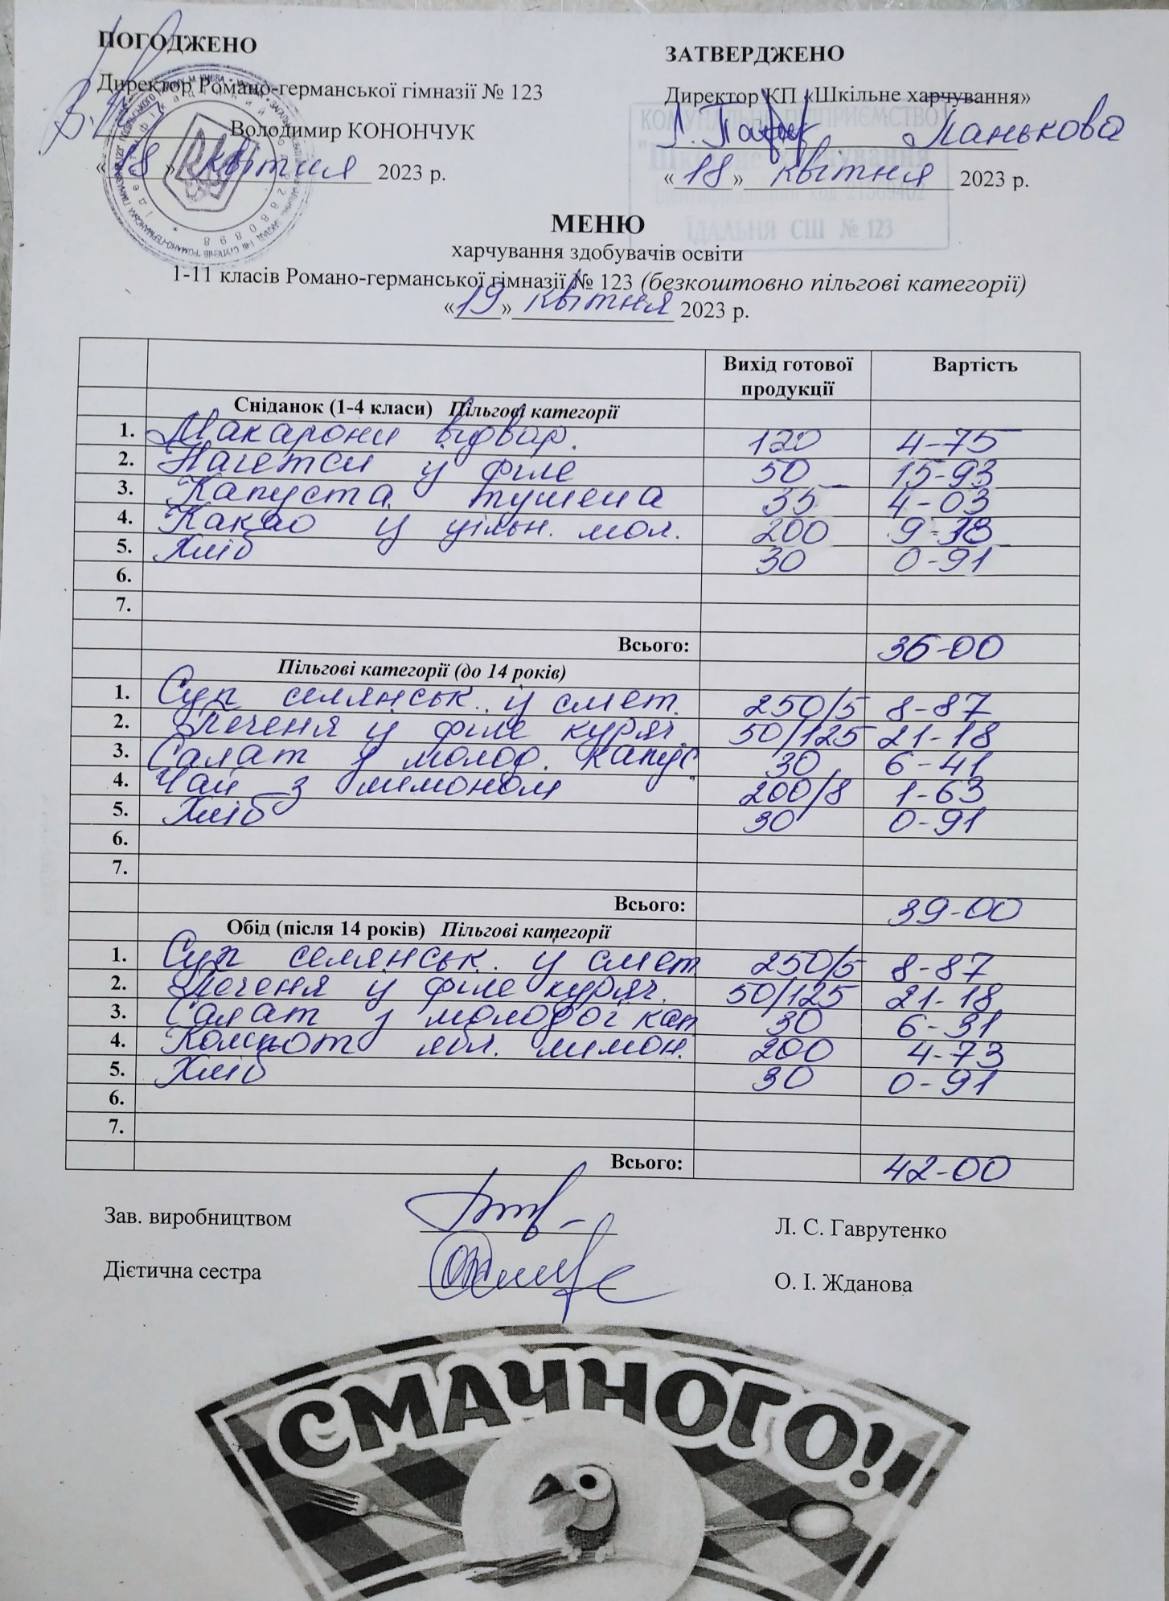 ПОГОДЖЕНО
Директор Романо-германської гімназії № 123
Володимир КОНОНЧУК
«18» квітня 2023 р.
ЗАТВЕРДЖЕНО
Директор КП «Шкільне харчування»
Панькова
«18» квітня 2023 р.
КОМУНАЛЬНЕ ПІДПРИЄМСТВО
"Шкільне харчування
ЇДАЛЬНЯ СШ № 123
МЕНЮ
харчування здобувачів освіти
1-11 класів Романо-германської гімназії № 123 (безкоштовно пільгові категорії)
«19» квітня 2023 р.
Вихід готової продукції Вартість
Сніданок (1-4 класи) Пільгові категорії
1. Макарони відвар. 120 4-75
2. Нагетси у філе 50 15-93
3. Капуста тушена 35 4-03
4. Какао у цільн. мол. 200 9-38
5. Хліб 30 0-91
6.
7.
Всього: 35-00
Пільгові категорії (до 14 років)
1. Суп селянськ. у смет. 250/5 8-87
2. Печеня у філе куряч. 50/125 21-18
3. Салат у молод. капус 30 6-41
4. Чай з лимоном 200/8 1-63
5. Хліб 30 0-91
6.
7.
Всього: 39-00
Обід (після 14 років) Пільгові категорії
1. Суп селянськ. у смет 250/5 8-87
2. Печеня у філе куряч. 50/125 21-18
3. Салат у молодої кап 30 6-31
4. Компот ябл. лимон. 200 4-73
5. Хліб 30 0-91
6.
7.
Всього: 42-00
Зав. виробництвом Л. С. Гаврутенко
Дієтична сестра О. І. Жданова
СМАЧНОГО!